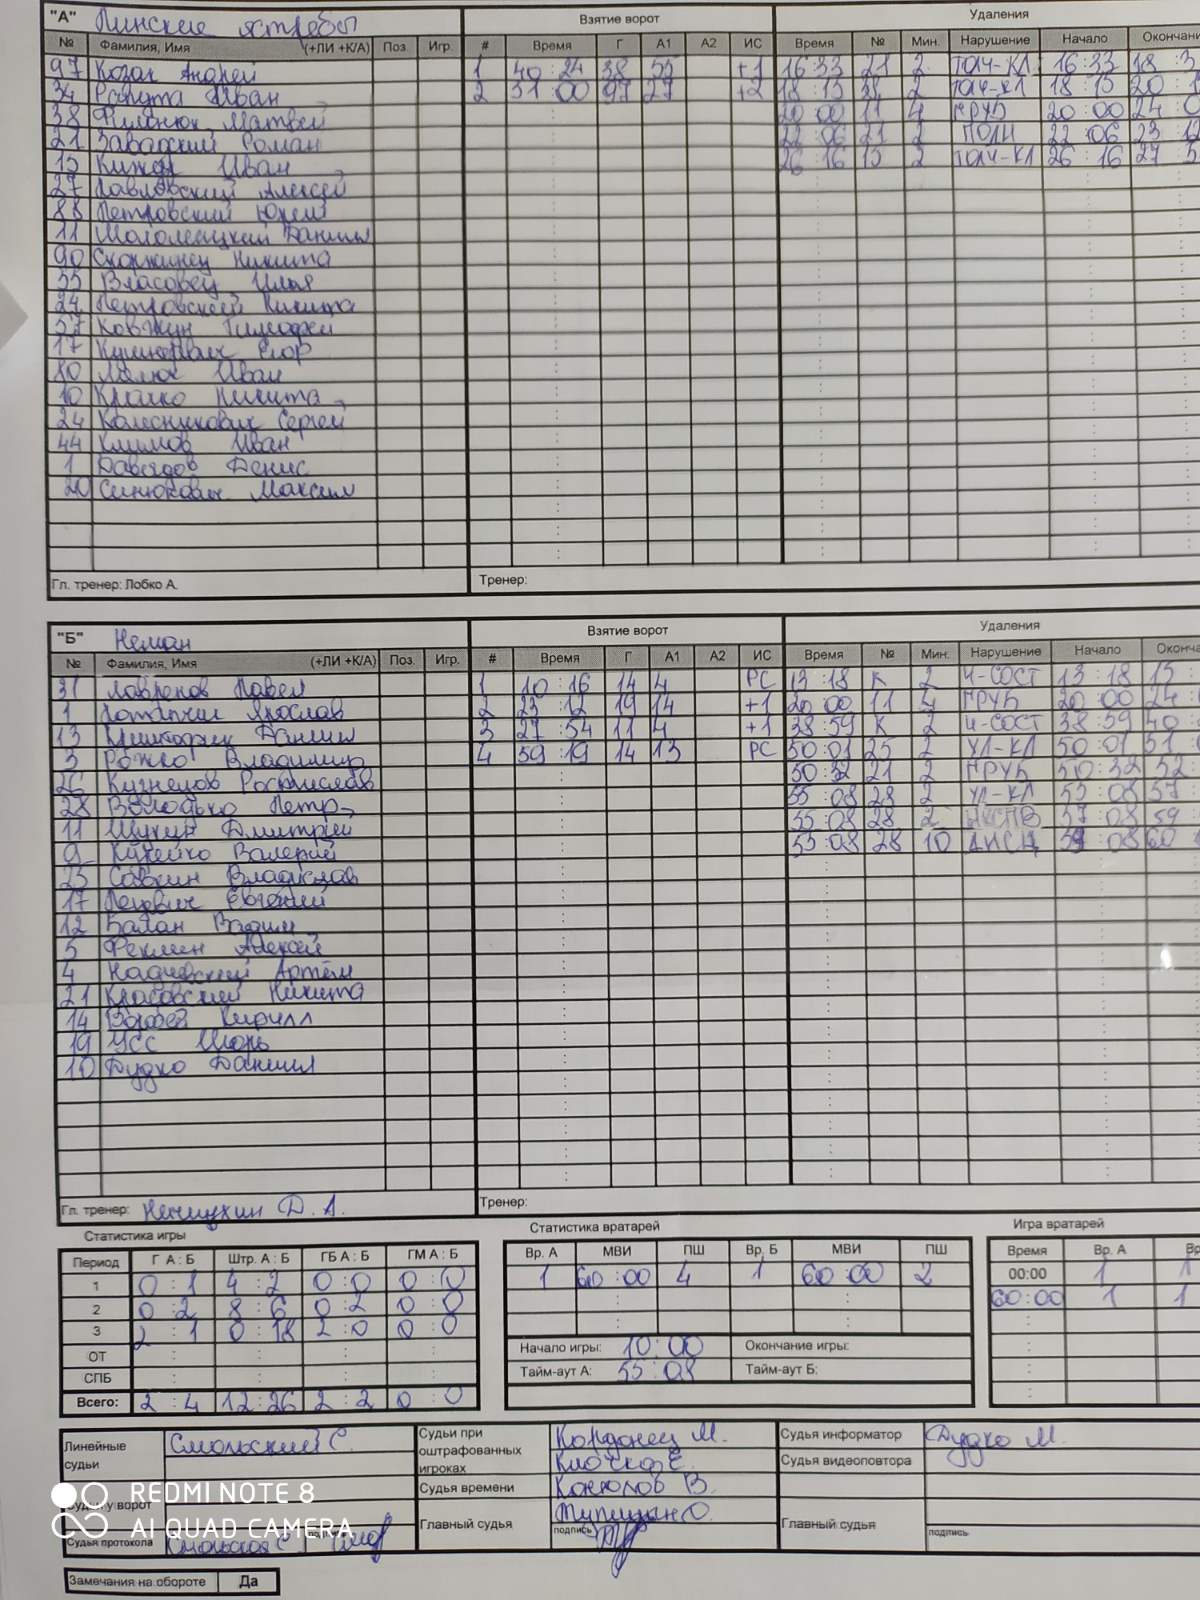 "А" Пинские ястребы Взятие ворот Удаления
№ Фамилия, Имя (+ЛИ +К/А) Поз. Игр. # Время Г А1 А2 ИС Время № Мин. Нарушение Начало Окончани
97 Козак Андрей 1 40:24 38 55 +1 16:33 21 2 ТОЛЧ-КЛ 16:33 18:3
34 Рапута Иван 2 51:00 97 27 +2 18:15 38 2 ТОЛЧ-КЛ 18:15 20:1
38 Филонюк Матвей 20:00 11 4 ГРУБ 20:00 24:0
21 Завадский Роман 22:06 21 2 22:06 23:12
15 Иван 26:16 15 2 ТОЛЧ-КЛ 26:16 27:5
27 Павловский Алексей
88 Петровский Юрий
11 Даниил
90 Никита
55 Власовец Илья
Петровский Никита
57 Ковжун Тимофей
17 Кушнеревич Егор
80 Лялюк Иван
10 Кралко Никита
24 Колесникович Сергей
44 Климов Иван
1 Давыдов Денис
20 Синюкович Максим
Гл. тренер: Лобко А. Тренер:
"Б" Неман Взятие ворот Удаления
№ Фамилия, Имя (+ЛИ +К/А) Поз. Игр. # Время Г А1 А2 ИС Время № Мин. Нарушение Начало Оконча
31 Лавренов Павел 1 10:16 14 4 РС 13:18 К 2 Ч-СОСТ 13:18 15:
1 Потапчик Ярослав 2 23:12 19 14 +1 20:00 11 4 ГРУБ 20:00 24:
13 Даниил 3 27:54 11 4 +1 38:59 К 2 Ч-СОСТ 38:59 40:
3 Рожко Владимир 4 59:19 14 13 РС 50:01 25 2 УЛ-КЛ 50:01 51:
26 Кузнецов Ростислав 50:32 21 2 ГРУБ 50:32 52:
28 Володько Петр 55:08 28 2 УЛ-КЛ 55:08 57:
11 Щукин Дмитрий 55:08 28 2 57:08 59:
9 Кукейко Валерий 55:08 28 10 ДИСЦ 08 60:
25 Савкин Владислав
17 Пецевич Евгений
12 Балан Вадим
5 Феклин Алексей
4 Надчевский Артём
21 Красовский Никита
14 Кирилл
19 Усс Игорь
10 Дудко Даниил
Гл. тренер: Нечищкин Д. А. Тренер:
Статистика игры Статистика вратарей Игра вратарей
Период Г А : Б Штр. А : Б ГБ А : Б ГМ А : Б Вр. А МВИ ПШ Вр. Б МВИ ПШ Время Вр. А Вр
1 0:1 4:2 0:0 0:0 1 60:00 4 1 60:00 2 00:00 1 1
2 0:2 8:6 0:2 0:0 60:00 1 1
3 2:1 0:18 2:0 0:0
ОТ Начало игры: 10:00 Окончание игры:
СПБ Тайм-аут А: 55:08 Тайм-аут Б:
Всего: 2:4 12:26 2:2 0:0
Линейные судьи Смольский С. Судьи при оштрафованных игроках Кордонец М. Судья информатор Дудко М.
Клочков Е. Судья видеоповтора
Судья времени Конюхов В.
Судьи у ворот Главный судья Тупицын О. Главный судья
Судья протокола подпись подпись
Замечания на обороте Да
REDMI NOTE 8
AI QUAD CAMERA